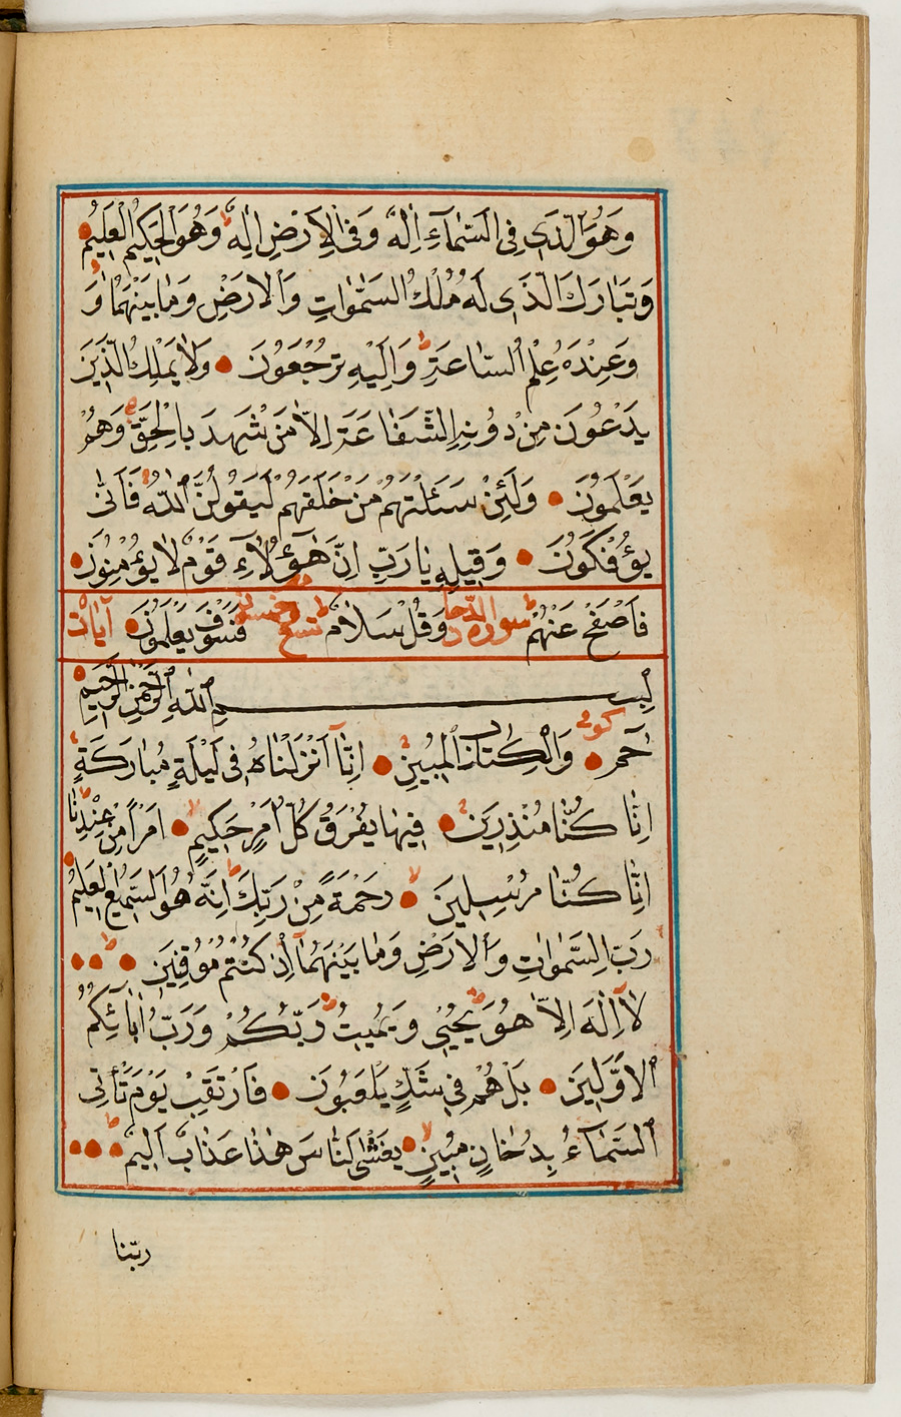 وَهُوَ الَّذٖى فِى السَّمَاۤءِ اِلٰهٌ وَفِى الْاَرْضِ اِلٰهٌ وَهُوَ الْحَكِيمُ الْعَلِيمُ
وَتَبَارَكَ الَّذِى لَهُ مُلْكُ السَّمٰوَاتِ وَالْاَرْضِ وَمَا بَيْنَهُمَا وَ
وَعِنْدَهُ عِلْمُ السَّاعَةِ وَاِلَيْهِ تُرْجَعُونَ وَلَا يَمْلِكُ الَّذِينَ
يَدْعُونَ مِنْ دُونِهِ الشَّفَاعَةَ اِلَّا مَنْ شَهِدَ بِالْحَقِّ وَهُمْ
يَعْلَمُونَ وَلَئِنْ سَئَلْتَهُمْ مَنْ خَلَقَهُمْ لَيَقُولُنَّ اللّٰهُ فَاَنّٰى
يُؤْفَكُونَ وَقِيلِهِ يَا رَبِّ اِنَّ هٰۤؤُلَاۤءِ قَوْمٌ لَا يُؤْمِنُونَ
فَاصْفَحْ عَنْهُمْ وَقُلْ سَلَامٌ فَسَوْفَ يَعْلَمُونَ
سورة الدخان تسع وخمسون آيات
بِسْمِ اللّٰهِ الرَّحْمٰنِ الرَّحِيمِ
حٰمۤ وَالْكِتَابِ الْمُبِينِ اِنَّاۤ اَنْزَلْنَاهُ فِى لَيْلَةٍ مُبَارَكَةٍ
اِنَّا كُنَّا مُنْذِرِينَ فِيهَا يُفْرَقُ كُلُّ اَمْرٍ حَكِيمٍ اَمْرًا مِنْ عِنْدِنَا
اِنَّا كُنَّا مُرْسِلِينَ رَحْمَةً مِنْ رَبِّكَ اِنَّهُ هُوَ السَّمِيعُ الْعَلِيمُ
رَبِّ السَّمٰوَاتِ وَالْاَرْضِ وَمَا بَيْنَهُمَاۤ اِنْ كُنْتُمْ مُوقِنِينَ
لَاۤ اِلٰهَ اِلَّا هُوَ يُحْيِى وَيُمِيتُ رَبُّكُمْ وَرَبُّ اٰبَاۤئِكُمُ
الْاَوَّلِينَ بَلْ هُمْ فِى شَكٍّ يَلْعَبُونَ فَارْتَقِبْ يَوْمَ تَأْتِى
السَّمَاۤءُ بِدُخَانٍ مُبِينٍ يَغْشَى النَّاسَ هٰذَا عَذَابٌ اَلِيمٌ
ربّنا